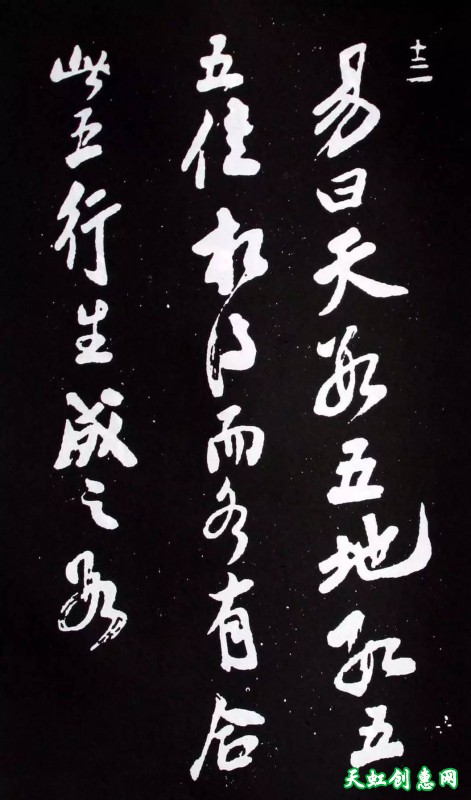 十二
易曰天数五地数五
五位相得而各有合
此五行生成之数
天虹创惠网